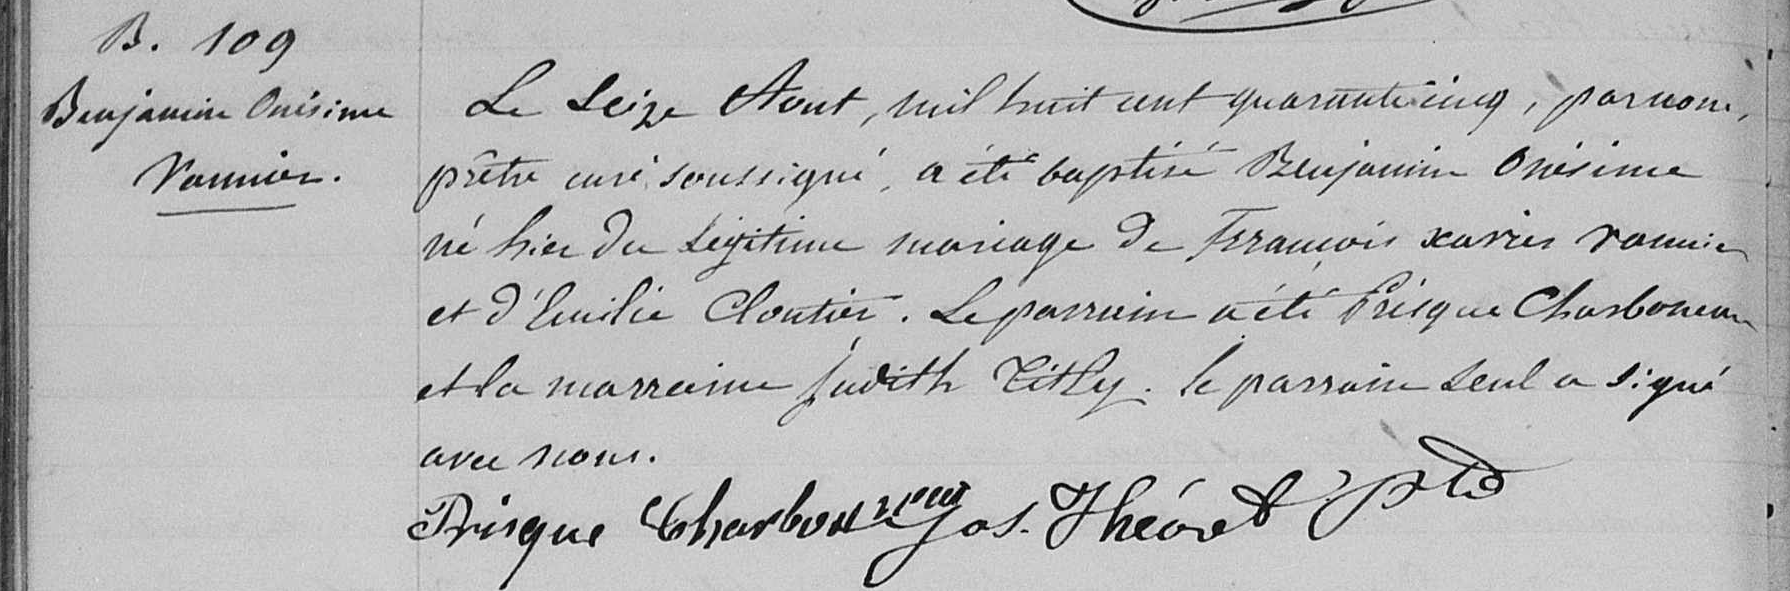 B. 109
Benjamin Onésime
Vannier.
Le Seize Aout, mil huit cent quarante cinq, par nous,
prêtre curé soussigné, a été baptisé Benjamin Onésime
né hier du légitime mariage de François xavier Vannier
et d'Emilie Cloutier. Le parrain a été Prisque Charboneau
et la marraine Judith Titly. le parrain seul a signé
avec nous.
Prisque Charbonneau Jos. Théoret Ptre